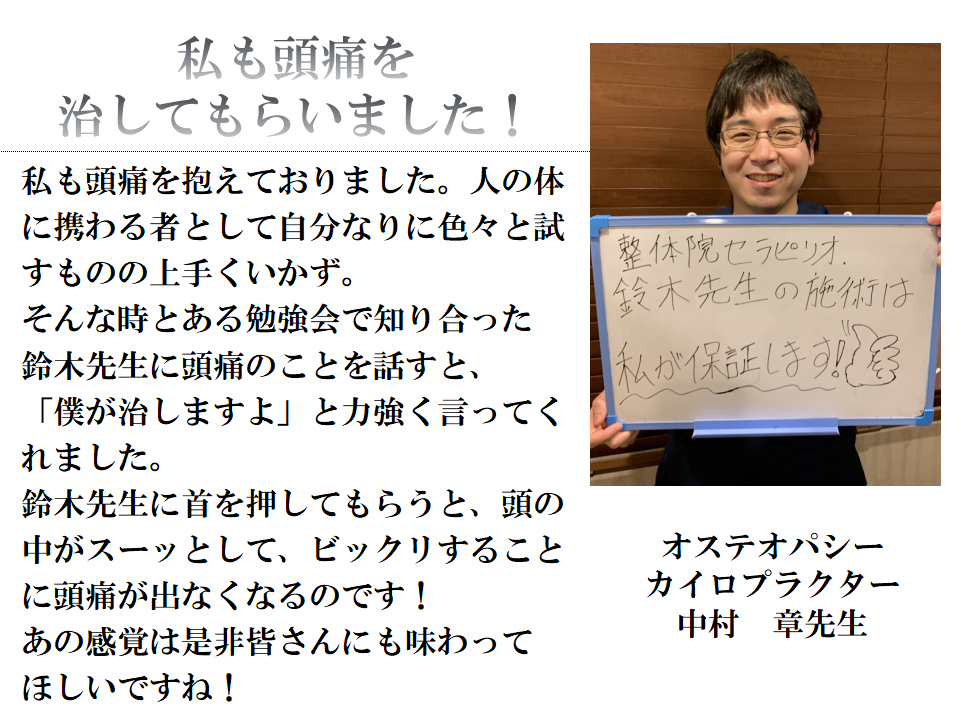 私も頭痛を
治してもらいました！
私も頭痛を抱えておりました。人の体
に携わる者として自分なりに色々と試
すものの上手くいかず。
そんな時とある勉強会で知り合った
鈴木先生に頭痛のことを話すと、
「僕が治しますよ」と力強く言ってく
れました。
鈴木先生に首を押してもらうと、頭の
中がスーッとして、ビックリすること
に頭痛が出なくなるのです！
あの感覚は是非皆さんにも味わって
ほしいですね！
整体院セラピリオ.
鈴木先生の施術は
私が保証します!
オステオパシー
カイロプラクター
中村　章先生